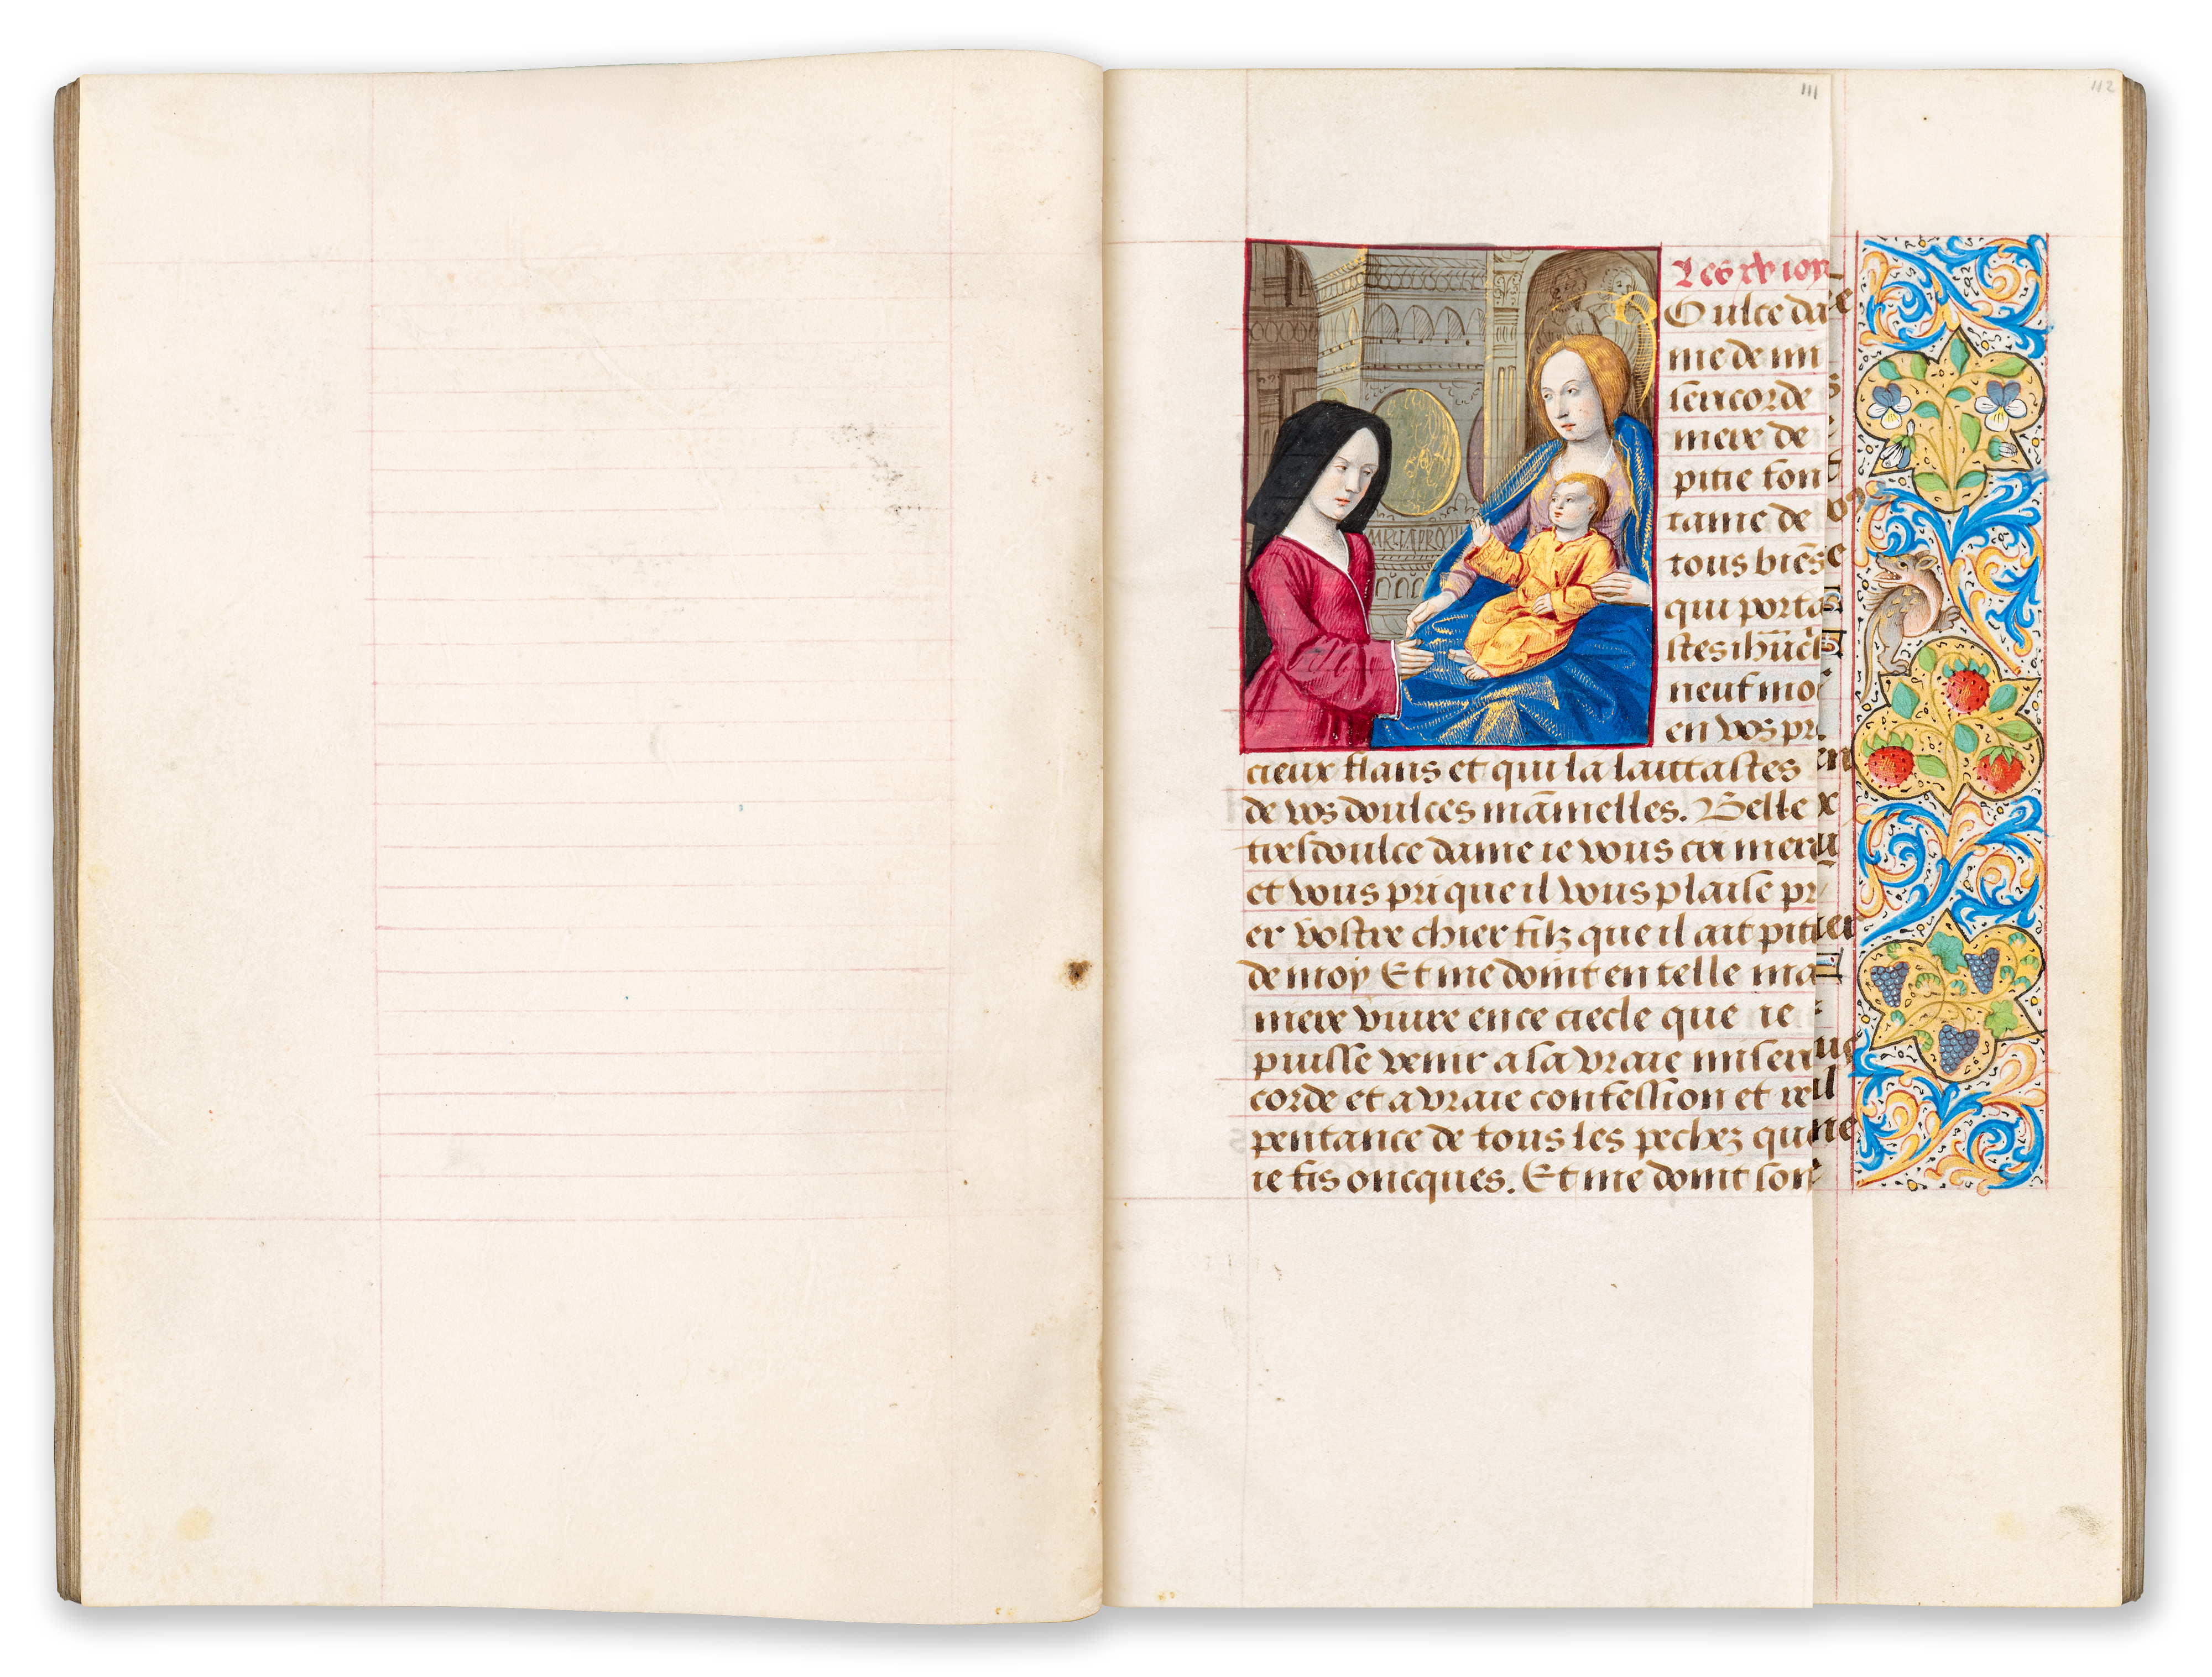 111
112
Les xv ioy
Doulce da
me de mi
sericorde
mere de
pitie fon
taine de
tous biēs
qui porta
stes
neuf moi
en vos pr
cieux flans et qui la laittastes
de vos doulces māmelles. Belle
tresdoulce dame ie vous cri mer
et vous pri que il vous plaise pr
er vostre chier filz que il ait piti
de moy Et me doint en telle ma
niere viure en ce ciecle que ie
puisse venir a la vraie miseri
corde et a vraie confession et re
pentance de tous les pechez qu
ie fis oncques. Et me doint son